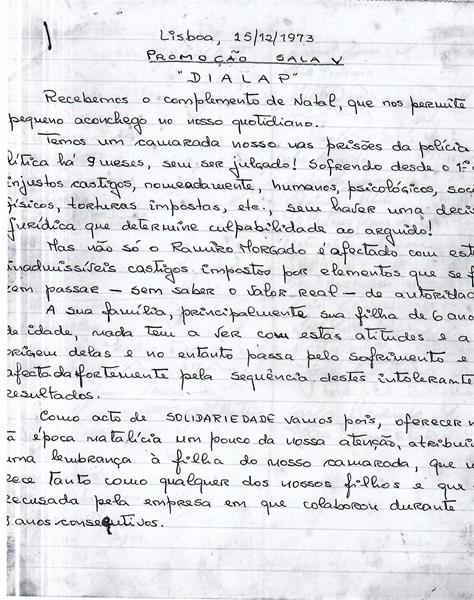 Lisboa, 15/12/1973
PROMOÇÃO SALA V
"DIALAP"
Recebemos o complemento de Natal, que nos permite
pequeno aconchego no nosso quotidiano..
Temos um camarada nosso nas prisões da polícia
lítica há 9 meses, sem ser julgado! Sofrendo desde o 1º
injustos castigos, nomeadamente, humanos, psicológicos,
físicos, torturas impostas, etc., sem haver uma decis
jurídica que determine culpabilidade ao arguido!
Mas não só o Ramiro Morgado é afectado com est
inadmissíveis castigos impostos por elementos que se f
zem passar – sem saber o valor real – de autoridad
A sua família, principalmente sua filha de 6 ano
de idade, nada tem a ver com estas atitudes e a
origem delas e no entanto passa pelo sofrimento e
afectada fortemente pela sequência destes intolerante
resultados.
Como acto de SOLIDARIEDADE vamos pois, oferecer n
a época natalícia um pouco da nossa atenção, atribui
uma lembrança à filha do nosso camarada, que
rece tanto como qualquer dos nossos filhos e que
recusada pela empresa em que colaborou durante
3 anos consecutivos.